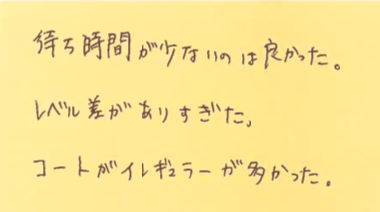 待ち時間が少ないのは良かった。
レベル差がありすぎた。
コートがイレギュラーが多かった。